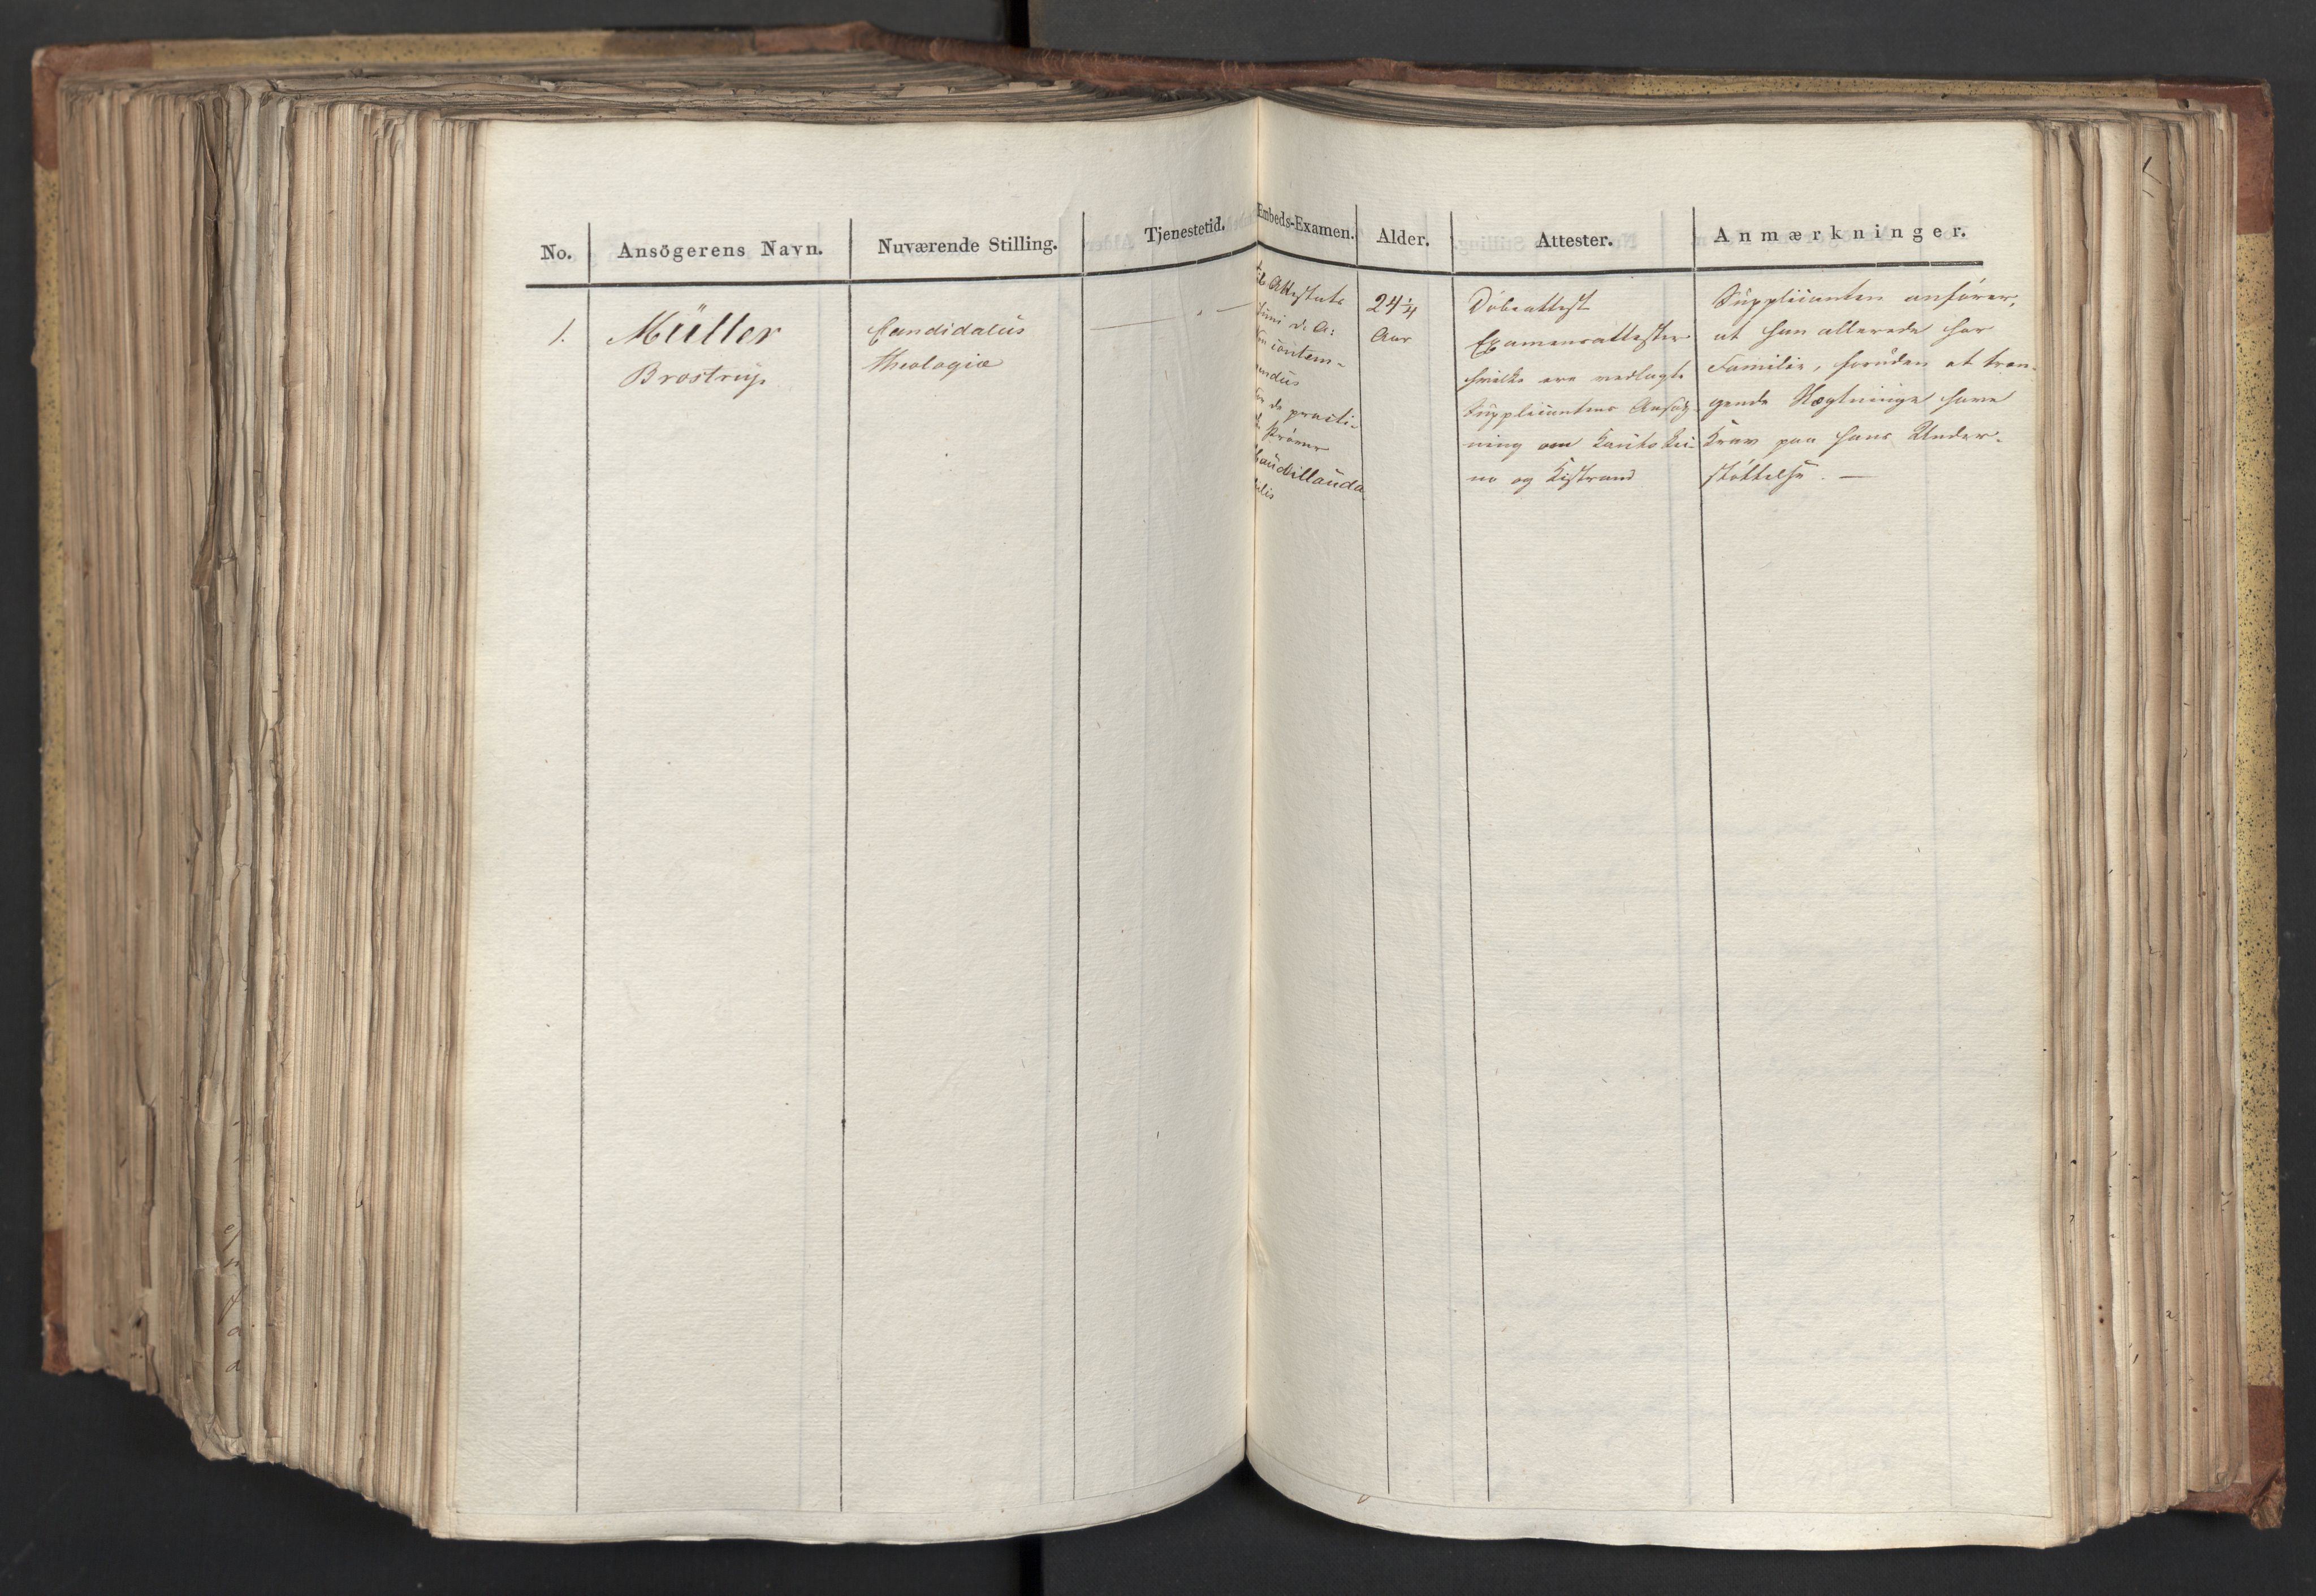 No.
Ansögerens Navn.
Nuværende Stilling.
Tjenestetid.
Embeds-Examen.
Alder.
Attester.
Anmærkninger.
1.
Müller
Brostrup
Candidatus
theologiæ
Attestats
Juni d. A:
Non contem-
nendus
for de practi-
ske Prøver
Haud illauda
bilis
24 1/4
Aar
Döbeattest
Examensattester
hvilke ere vedlagte
Supplicantens Ansög-
ning om Kautokei-
no og Kistrand
Supplicanten anförer,
at han allerede har
Familie, foruden at tran-
gende Slægtninge have
Krav paa hans Under-
støttelse. —